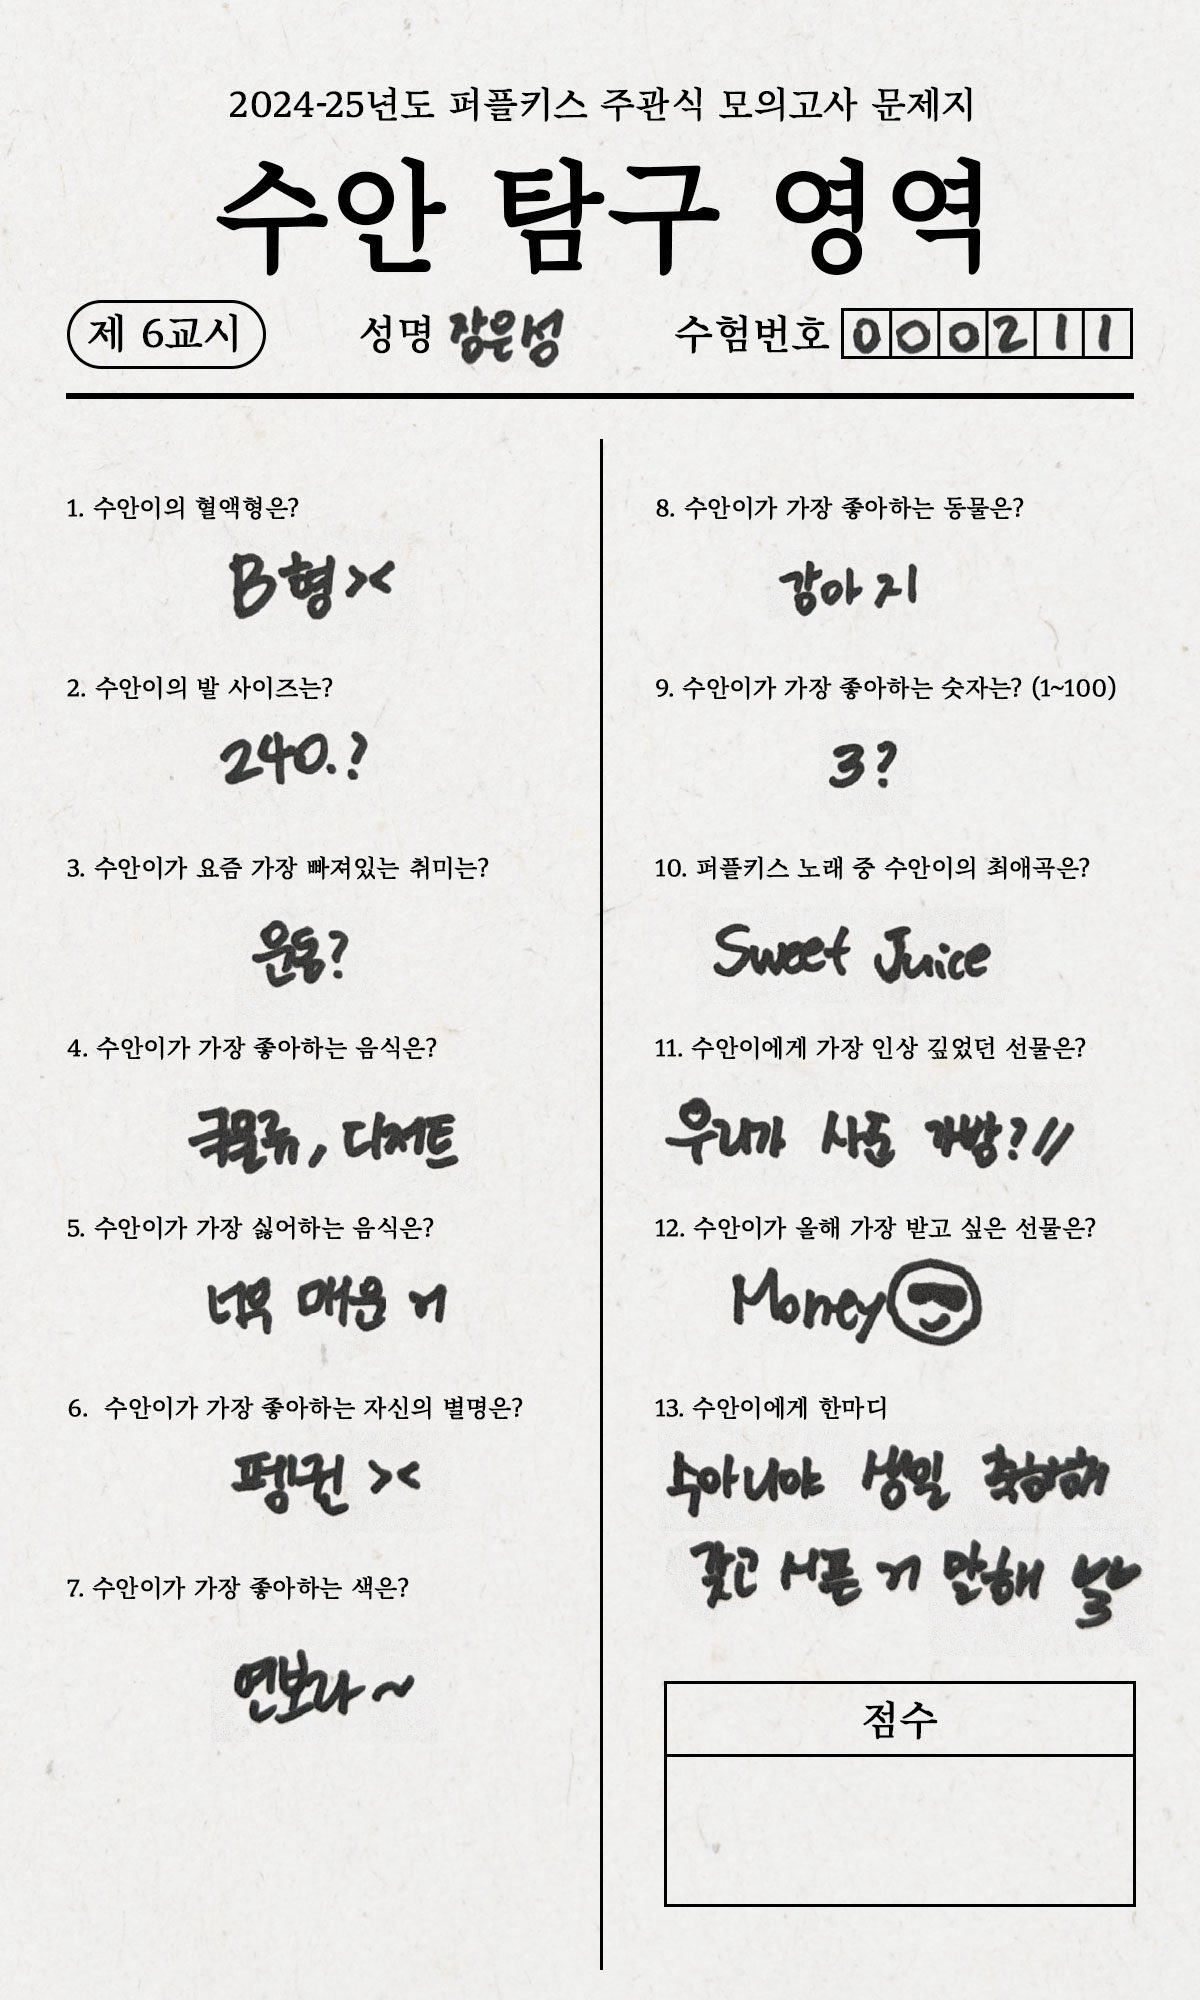 2024-25년도 퍼플키스 주관식 모의고사 문제지
수안 탐구 영역
제 6교시
성명 장은성
수험번호 000211
1. 수안이의 혈액형은?
B형><
2. 수안이의 발 사이즈는?
240.?
3. 수안이가 요즘 가장 빠져있는 취미는?
운동?
4. 수안이가 가장 좋아하는 음식은?
국물류, 디저트
5. 수안이가 가장 싫어하는 음식은?
너무 매운 거
6. 수안이가 가장 좋아하는 자신의 별명은?
펭귄 ><
7. 수안이가 가장 좋아하는 색은?
연보라~
8. 수안이가 가장 좋아하는 동물은?
강아지
9. 수안이가 가장 좋아하는 숫자는? (1~100)
3?
10. 퍼플키스 노래 중 수안이의 최애곡은?
Sweet Juice
11. 수안이에게 가장 인상 깊었던 선물은?
우리가 사준 가방?//
12. 수안이가 올해 가장 받고 싶은 선물은?
Money
13. 수안이에게 한마디
수아니야 생일 축하해
갖고 시픈 거 말해 놔
점수